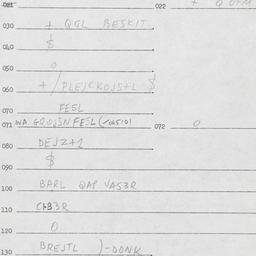 021 022 + Q
030 + QGL BESKIT
040 $
050 O
060 + / PLEJCKOJS+L $
070 FESL
071 WA GROJSNFESL (✓065101 072 O
080 DEJZ+1
090 $
100 BARL QAP VAS3R
110 CHB3R
120 O
130 BREJTL )-DONK